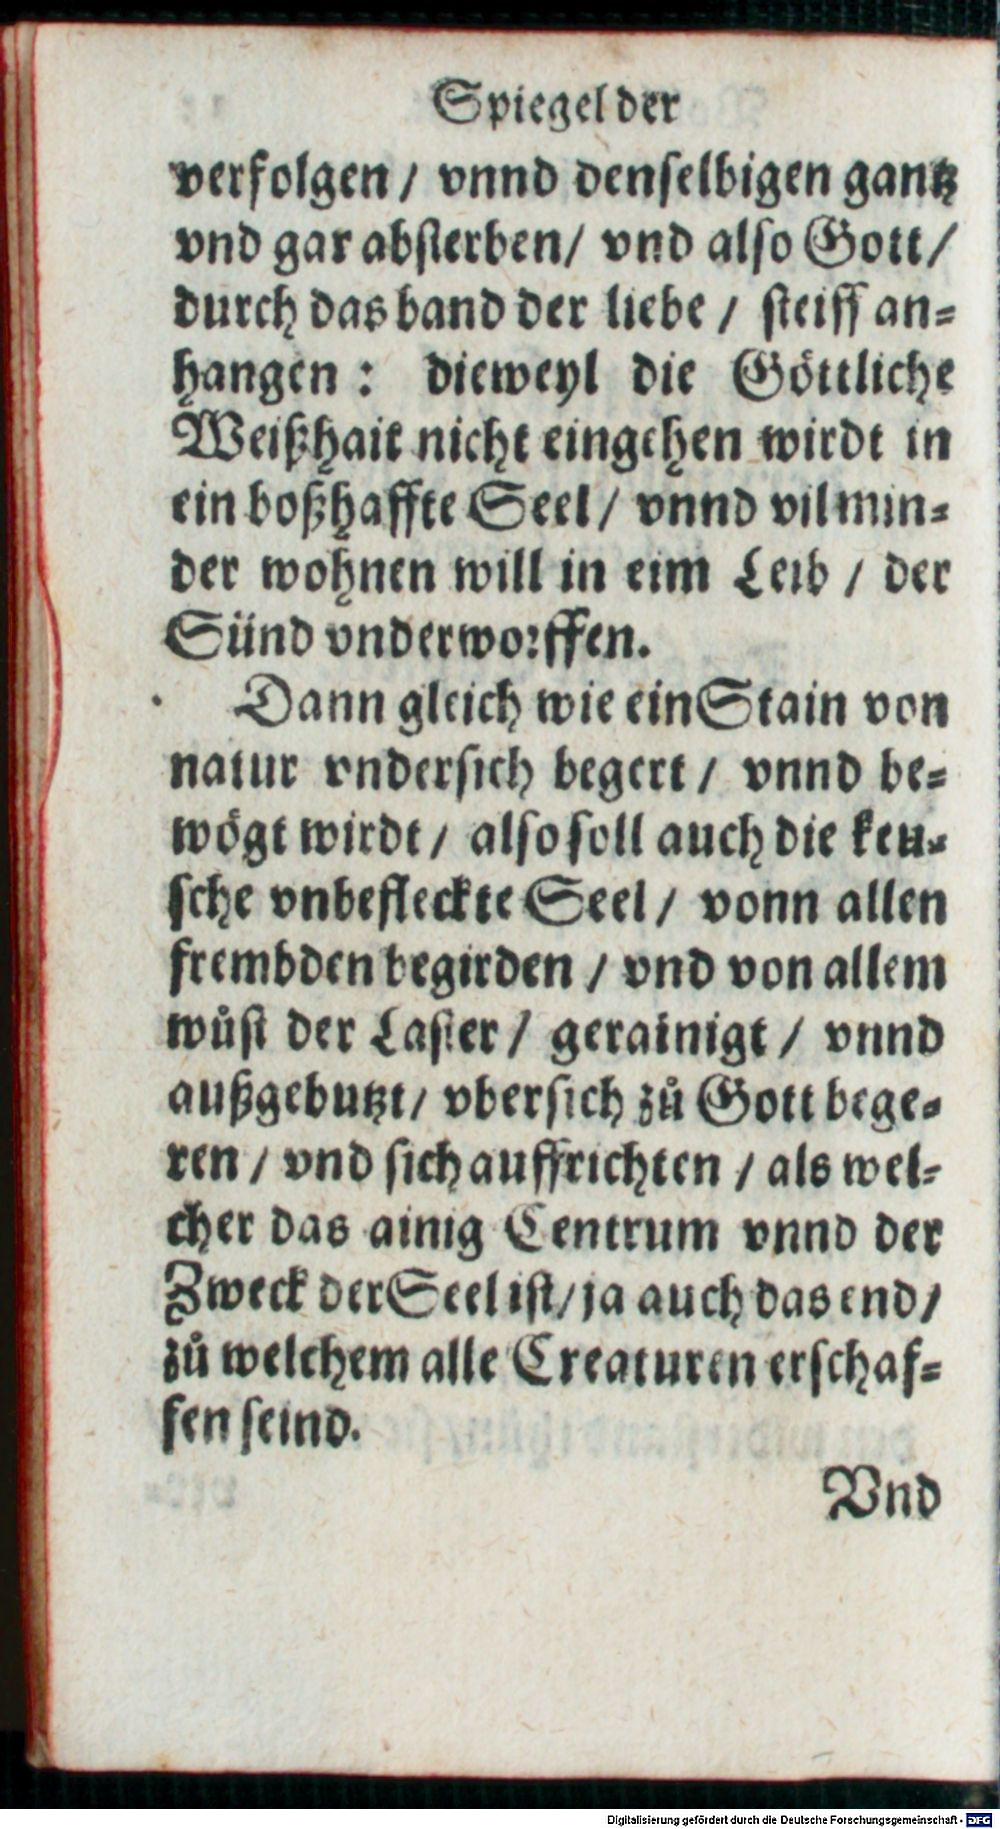 Spiegel der
verfolgen / vnnd denselbigen gantz
vnd gar absterben / vnd also Gott /
durch das band der liebe / steiff an-
hangen : dieweyl die Göttliche
Weißhait nicht eingehen wirdt in
ein boßhaffte Seel / vnnd vil min-
der wohnen will in eim Leib / der
Sünd vnderworffen.
Dann gleich wie ein Stain von
natur vndersich begert / vnnd be-
wögt wirdt / also soll auch die keu-
sche vnbefleckte Seel / vonn allen
frembden begirden / vnd von allem
wůst der Laster / gerainigt / vnnd
außgebutzt / vbersich zů Gott bege-
ren / vnd sich auffrichten / als wel-
cher das ainig Centrum vnnd der
Zweck der Seel ist / ja auch das end /
zů welchem alle Creaturen erschaf-
fen seind.
Vnd
Digitalisierung gefördert durch die Deutsche Forschungsgemeinschaft - DFG